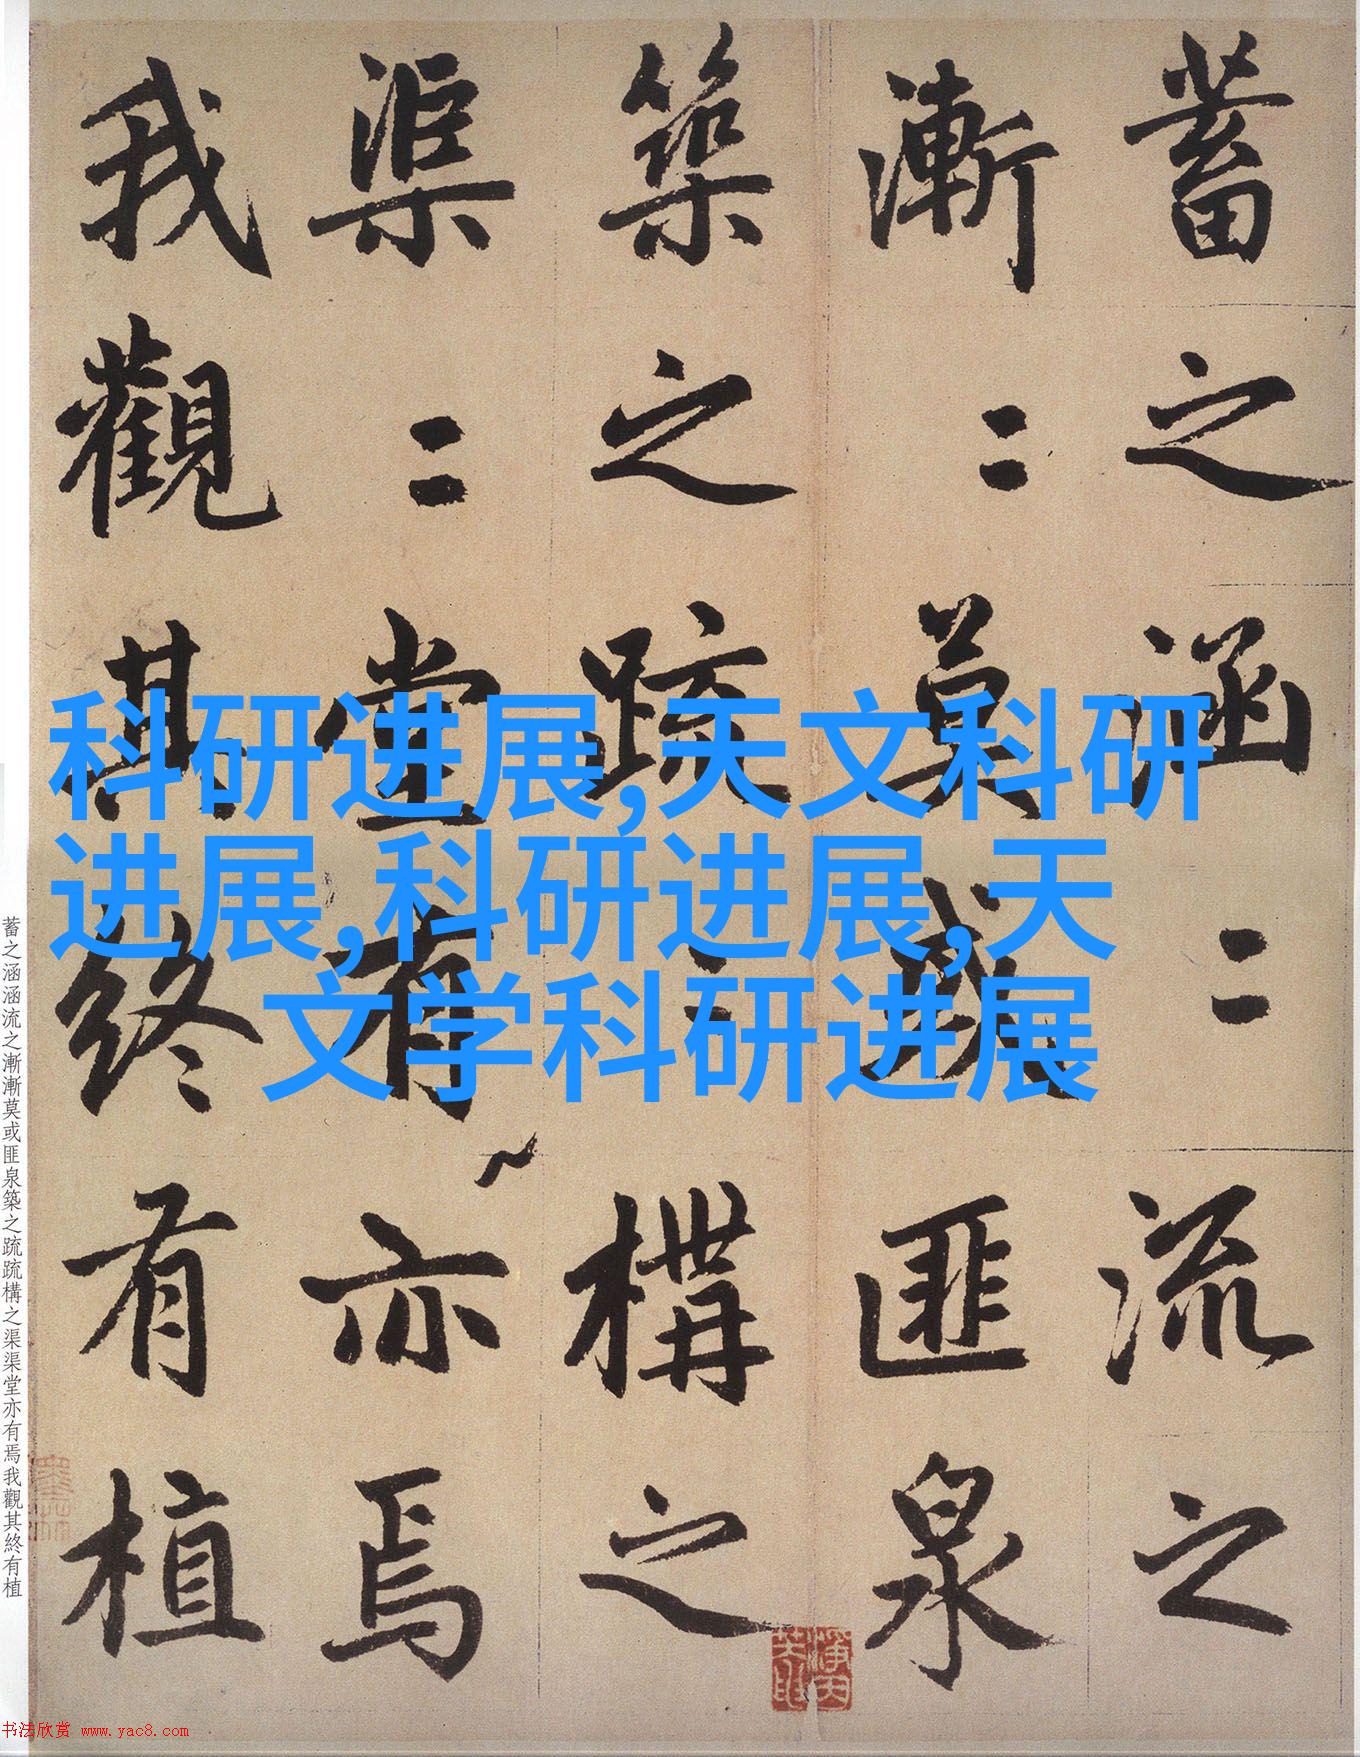 蓄之涵〻流之
漸〻莫或匪泉
築之疏〻構之
渠〻堂有亦焉
我觀其終有植
科研进展,天文科研
进展,科研进展,天
文学科研进展
蓄之涵涵流之漸漸莫或匪泉築之疏疏構之渠渠堂亦有焉我觀其終有植
书法欣赏 www.yac8.com